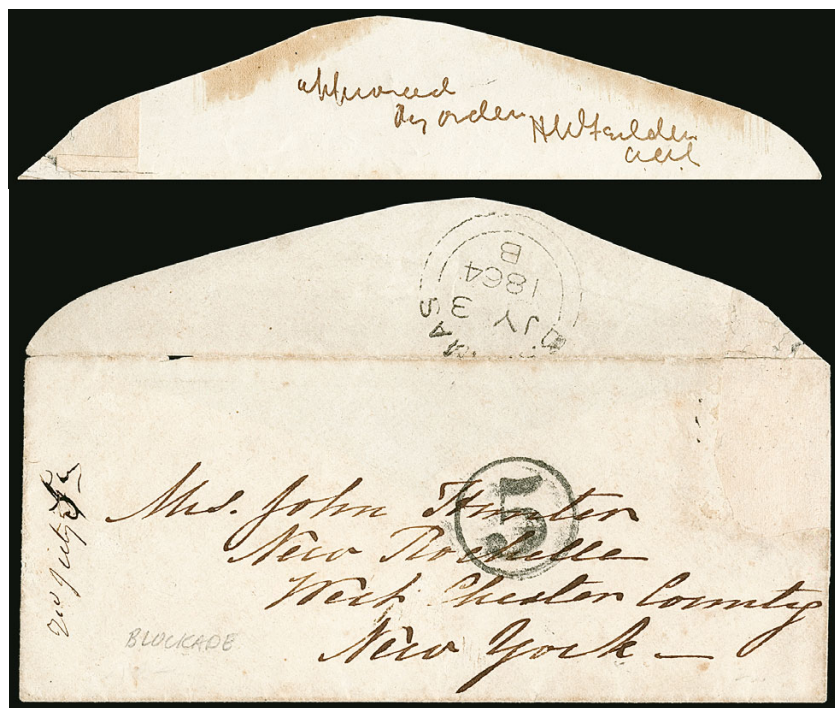 approved
by order
HWFeilden
AAG
B
1864
JY 3
MAS
5
Mrs. John Hunter
New Rochelle
West Chester County
New York —
2nd July
BLOCKADE